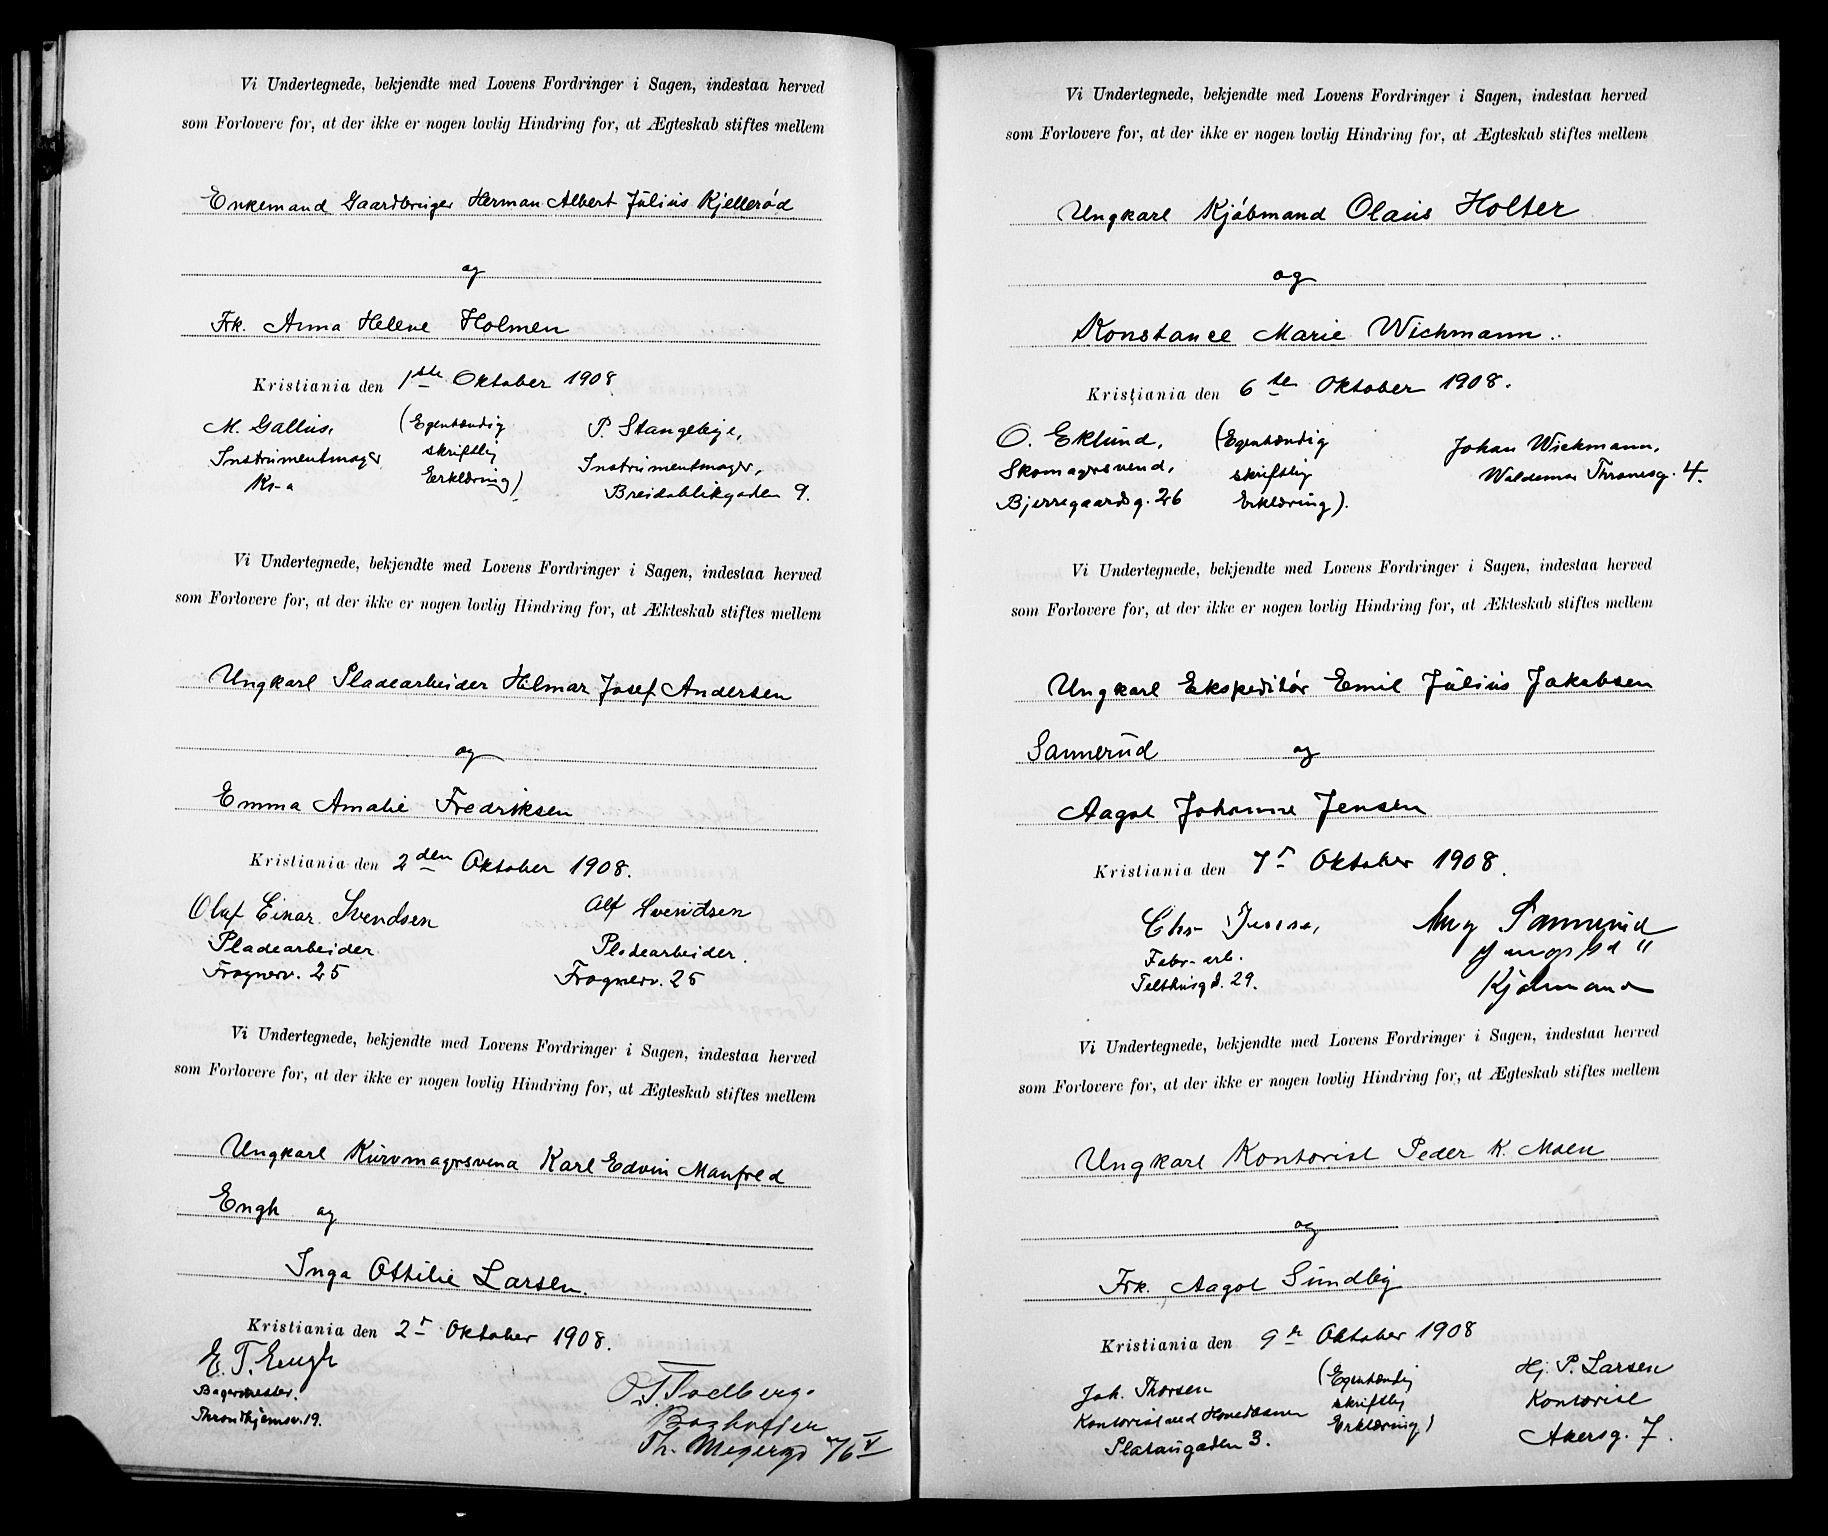 Vi Undertegnede, bekjendte med Lovens Fordringer i Sagen, indestaa herved
som Forlovere for, at der ikke er nogen lovlig Hindring for, at Ægteskab stiftes mellem
Enkemand Gaardbruger Herman Albert Julius Kjellerød
og
Frk. Anna Helene Holmen
Kristiania den 1ste Oktober 1908
M. Gallus, (Egenhændig P. Stangebye,
Instrumentmager skriftlig Instrumentmager,
Kr-a Erklæring) Breidablikgaden 9.
Vi Undertegnede, bekjendte med Lovens Fordringer i Sagen, indestaa herved
som Forlovere for, at der ikke er nogen lovlig Hindring for, at Ækteskab stiftes mellem
Ungkarl Pladearbeider Hilmar Josef Andersen
og
Emma Amalie Fredriksen
Kristiania den 2den Oktober 1908.
Olaf Einar Svendsen Alf Svendsen
Pladearbeider Pladearbeider.
Frognerv. 25 Frognerv. 25
Vi Undertegnede, bekjendte med Lovens Fordringer i Sagen, indestaa herved
som Forlovere for, at der ikke er nogen lovlig Hindring for, at Ægteskab stiftes mellem
Ungkarl Kurvmagersvend Karl Edvin Manfred
Engh og
Inga Ottilie Larsen.
Kristiania den 2 Oktober 1908.
E. T. Engh
Bagermester. O. T. Todberg.
Throndhjemsv. 19. Bogholder
Th. Meyersgd 76 V
Vi Undertegnede, bekjendte med Lovens Fordringer i Sagen, indestaa herved
som Forlovere for, at der ikke er nogen lovlig Hindring for, at Ægteskab stiftes mellem
Ungkarl Kjøbmand Olaus Holter
og
Konstance Marie Wichmann.
Kristiania den 6te Oktober 1908.
O. Eklund, (Egenhændig Johan Wickmann,
Skomagersvend, skriftlig Waldemar Thranesg. 4.
Bjerregaardsg. 26 Erklæring).
Vi Undertegnede, bekjendte med Lovens Fordringer i Sagen, indestaa herved
som Forlovere for, at der ikke er nogen lovlig Hindring for, at Ækteskab stiftes mellem
Ungkarl Ekspeditør Emil Julius Jakobsen
Sannerud og
Aagot Johanne Jensen
Kristiania den 7 Oktober 1908.
Chr Jensen, Aug Sannerud
Fabr. arb.
Telthusgd. 29. Kjøbmand
Vi Undertegnede, bekjendte med Lovens Fordringer i Sagen, indestaa herved
som Forlovere for, at der ikke er nogen lovlig Hindring for, at Ægteskab stiftes mellem
Ungkarl Kontorist Peder K. Moen
og
Frk. Aagot Sundby
Kristiania den 9de Oktober 1908
Joh. Thorsen (Egenhændig Hj. P. Larsen
Kontorist ved Hovedbanen skriftlig Kontorist
Platougaden 3. Erklæring) Akersg. 7.